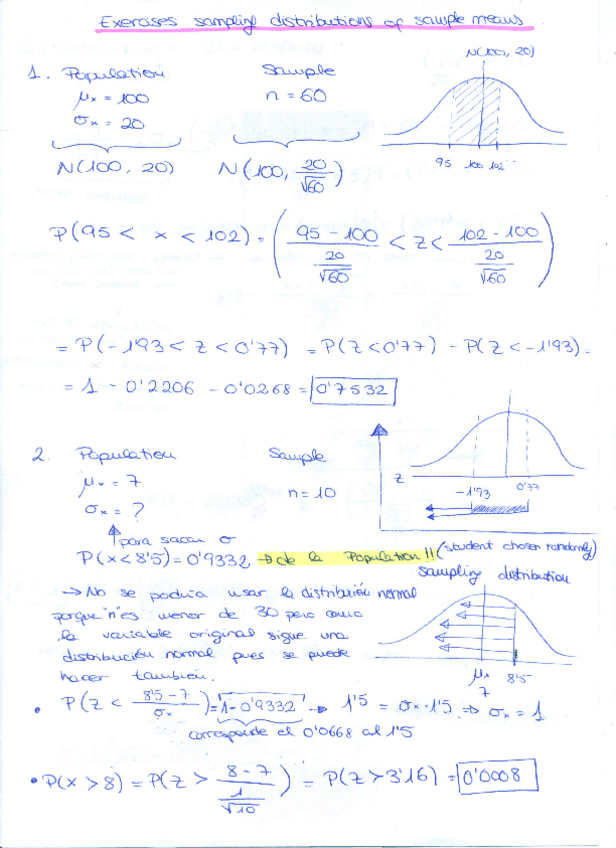 Exercises sampling distributions of sample means
N(100, 20)
1. Population Sample
μx = 100 n = 60
σx = 20
N(100, 20) N(100, 20/√60)
95 100 102
P(95 < x < 102) = (95 - 100 / 20/√60 < z < 102 - 100 / 20/√60)
= P(-1'93 < z < 0'77) = P(z < 0'77) - P(z < -1'93) =
= 1 - 0'2206 - 0'0268 = 0'7532
2. Population Sample
μx = 7 n = 10
σx = ?
z
-1'93 0'77
para sacar σ
P(x < 8'5) = 0'9332 → de la Population!! (student chosen randomly)
sampling distribution
→ No se podría usar la distribución normal
porque "n" es menor de 30 pero como
la variable original sigue una
distribución normal pues se puede
hacer también.
μx
7 8'5
• P(z < 8'5 - 7 / σx) = 1 - 0'9332 → 1'5 = σx · 1'5 ⇒ σx = 1
corresponde el 0'0668 al 1'5
• P(x > 8) = P(z > 8 - 7 / 1/√10) = P(z > 3'16) = 0'0008